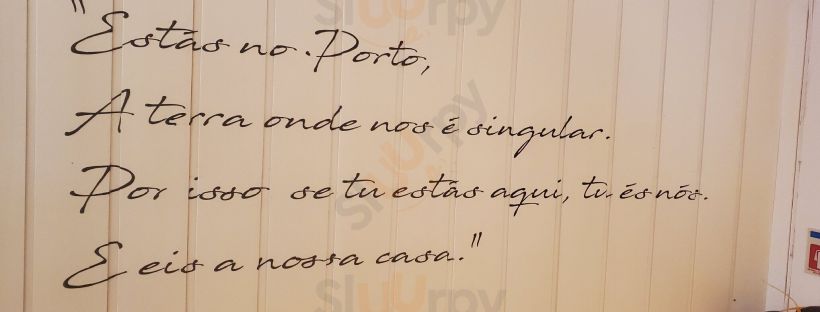 "Estás no Porto,
A terra onde nos é singular.
Por isso se tu estás aqui, tu és nós.
E eis a nossa casa."
Sluurpy
Sluurpy
Sluurpy